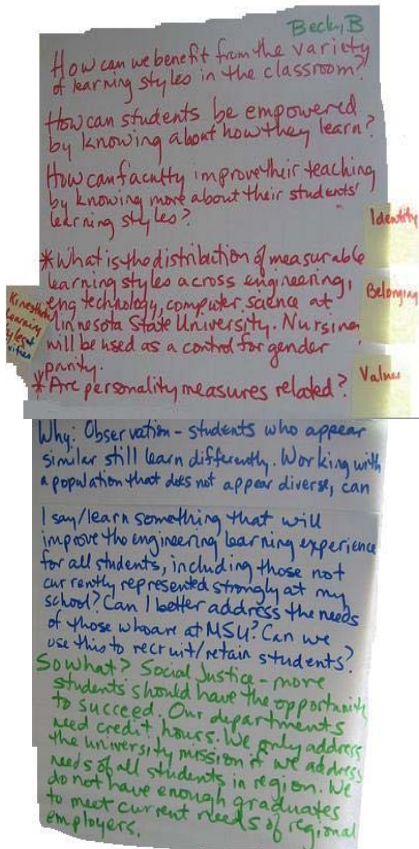 Beck, B
How can we benefit from the variety
of learning styles in the classroom?
How can students be empowered
by knowing about how they learn?
How can faculty improve their teaching
by knowing more about their students'
learning styles?
Identity
*What is the distribution of measurable
learning styles across engineering,
eng technology, computer science at
Minnesota State University. Nursing
will be used as a control for gender
parity.
*Are personality measures related?
Belonging
Values
Kinesthetic
Learning
Why: Observation - students who appear
similar still learn differently. Working with
a population that does not appear diverse, can
I say/learn something that will
improve the engineering learning experience
for all students, including those not
currently represented strongly at my
school? Can I better address the needs
of those who are at MSU? Can we
use this to recruit/retain students?
So what? Social Justice - more
students should have the opportunity
to succeed. Our departments
need credit hours. We only address
the university mission if we address
needs of all students in region. We
do not have enough graduates
to meet current needs of regional
employers.